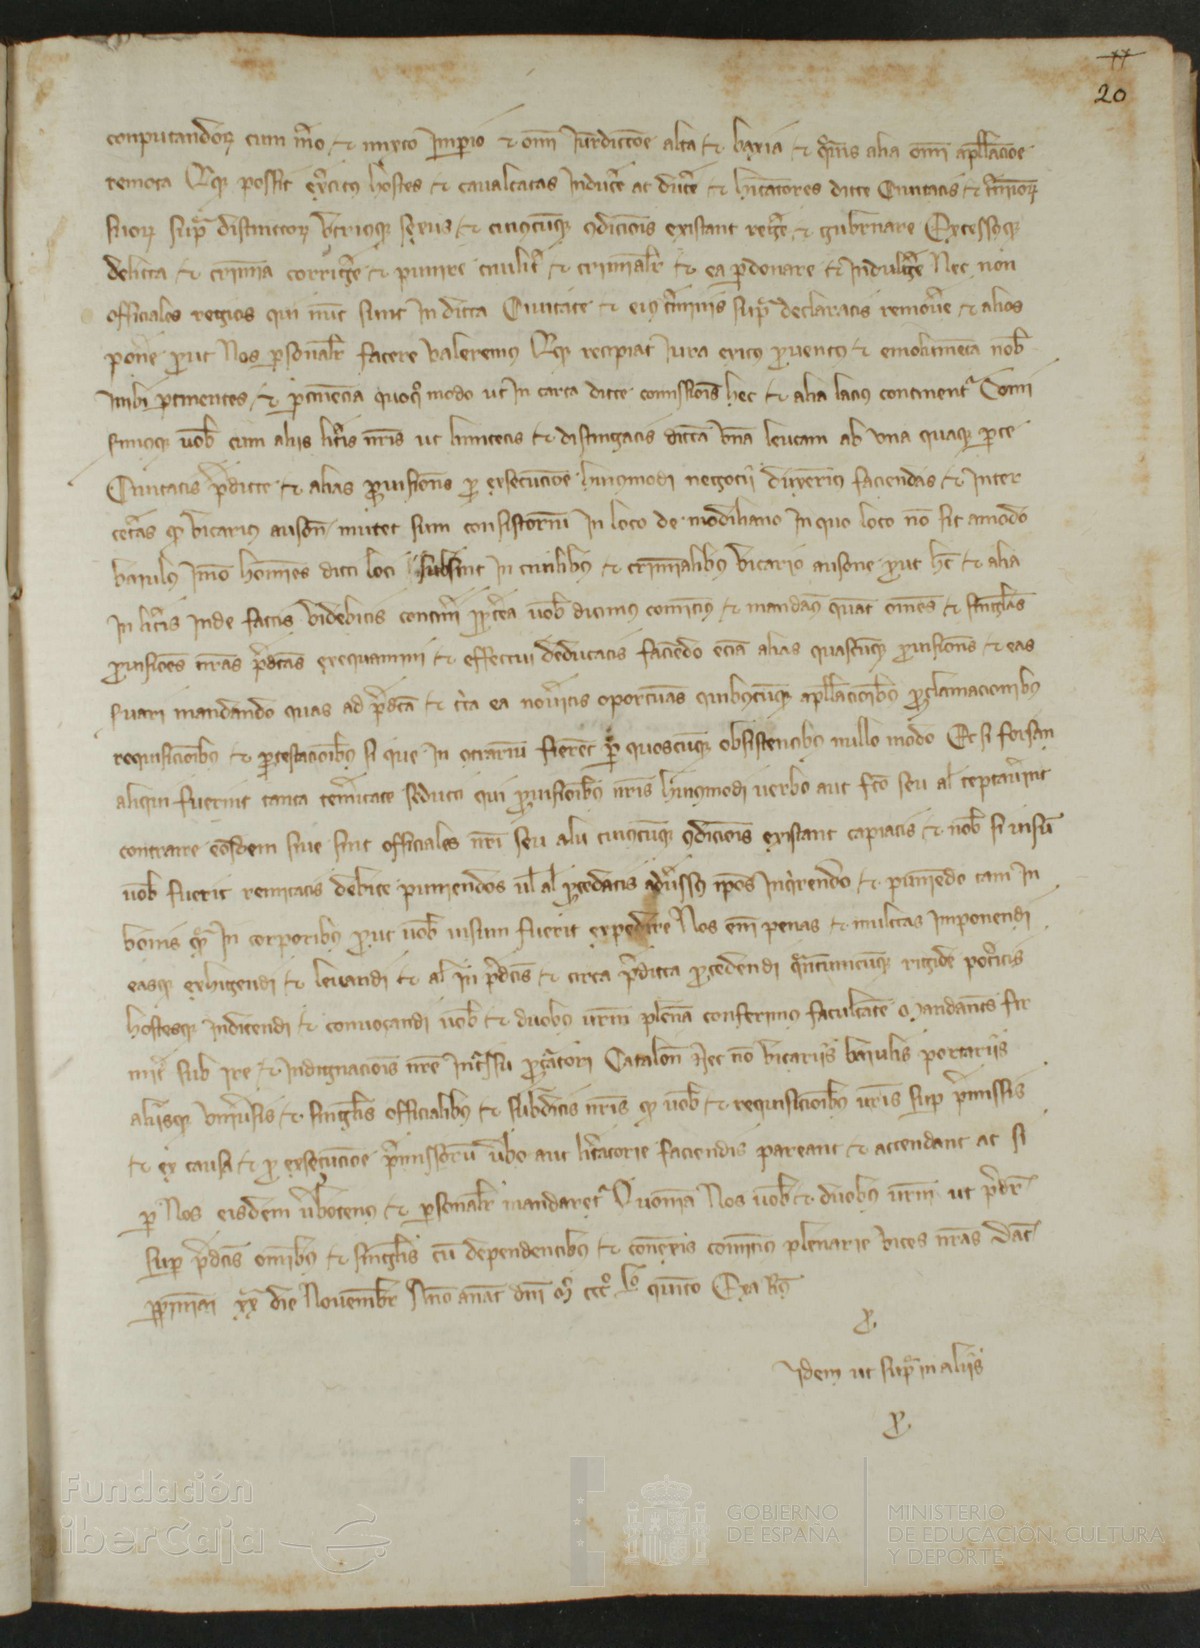 77
20
conputandor cum mero et mixto Imperio et omi Jurdiccoe alta et baxia et quavis alia omi apllacioe
remota Et que possit exercitus hostes et cavalcatas Inducere ac ducere et hitatores dicte Civitatis et terminor
suor supra distinctor utriusque sexus et cuiuscumque condicionis existant regere et gubernare Excessusque
delicta et crimina corrigere et punire civilit et criminalr et ea perdonare et Indulgere Nec non
officiales regios qui nunc sunt In dicta Civitate et eius terminis supra declaratis removere et alios
ponere prout Nos personalr facere valeremus Et que recipiat Jura exitus proventus et emolumenta nob
Inibi pertinentes et pertinencia quoquo modo ut In carta dicte comissionis hec et alia lacius continentur Comi
simusque vob cum aliis litris nris ut limitetis et distingatis dictam unam leucam ab una quaque parte
Civitatis predicte et alias provisiones pro exsecucione huiusmodi negocii duxerimus faciendas et Inter
ceteras quod vicarius ausone mutet suum consistorium In loco de modiliano In quo loco non sit amodo
baiulus Imo homines dicti loci subsint In civilibus et criminalibus vicario ausone prout hec et alia
In litris Inde factis videbitis contineri propterea vob dicimus comitimus et mandamus quatenus omnes et singulas
provisiones nras predictas exequamini et effectui deducatis faciendo eciam alias quascumque provisiones et eas
servari mandando quas ad predicta et circa ea noveritis oportunas quibuscumque apllacionibus proclamacionibus
requisicionibus et protestacionibus si que In contrarium fierent per quoscumque obsistentibus nullo modo Et si forsan
aliqui fuerint tanta temeritate seducti qui provisionibus nris huiusmodi verbo aut facto seu al temptaverint
contraire eosdem sive sint officiales nri seu alii cuiuscumque condicionis existant capiatis et nob si visum
vob fuerit remitatis debite puniendos vel al procedatis adversus ipsos Inquirendo et puniendo tam In
bonis quam In corporibus prout vob visum fuerit expedire Nos enim penas et multas Imponendi
easque exhigendi et levandi et al In predictis et circa predicta procedendi quantumcumque rigide poteritis
hostesque Indicendi et convocandi vob et duobus vrm plenam conferimus facultatem Mandantes fir
miter sub Ire et Indignacionis nre Incursu procuratori Catalon Nec non vicariis baiulis portariis
aliisque universis et singulis officialibus et subditis nris quod vob et requisicionibus vris super premissis
et ex causa et pro exsecucione premissorum verbo aut litteratorie faciendis pareant et attendant ac si
per Nos eisdem verbotenus et personalr mandaretur Quoniam Nos vob et duobus vrm ut predr
super predictis omnibus et singulis cum dependentibus et conexis comitimus plenarie vices nras Dat
perpiniani XX die Novembr Anno anat dni M CCC Lo quinto Exa Rg
P.
Idem ut supra in aliis
P.
Fundación
iberCaja
GOBIERNO
DE ESPAÑA
MINISTERIO
DE EDUCACIÓN, CULTURA
Y DEPORTE